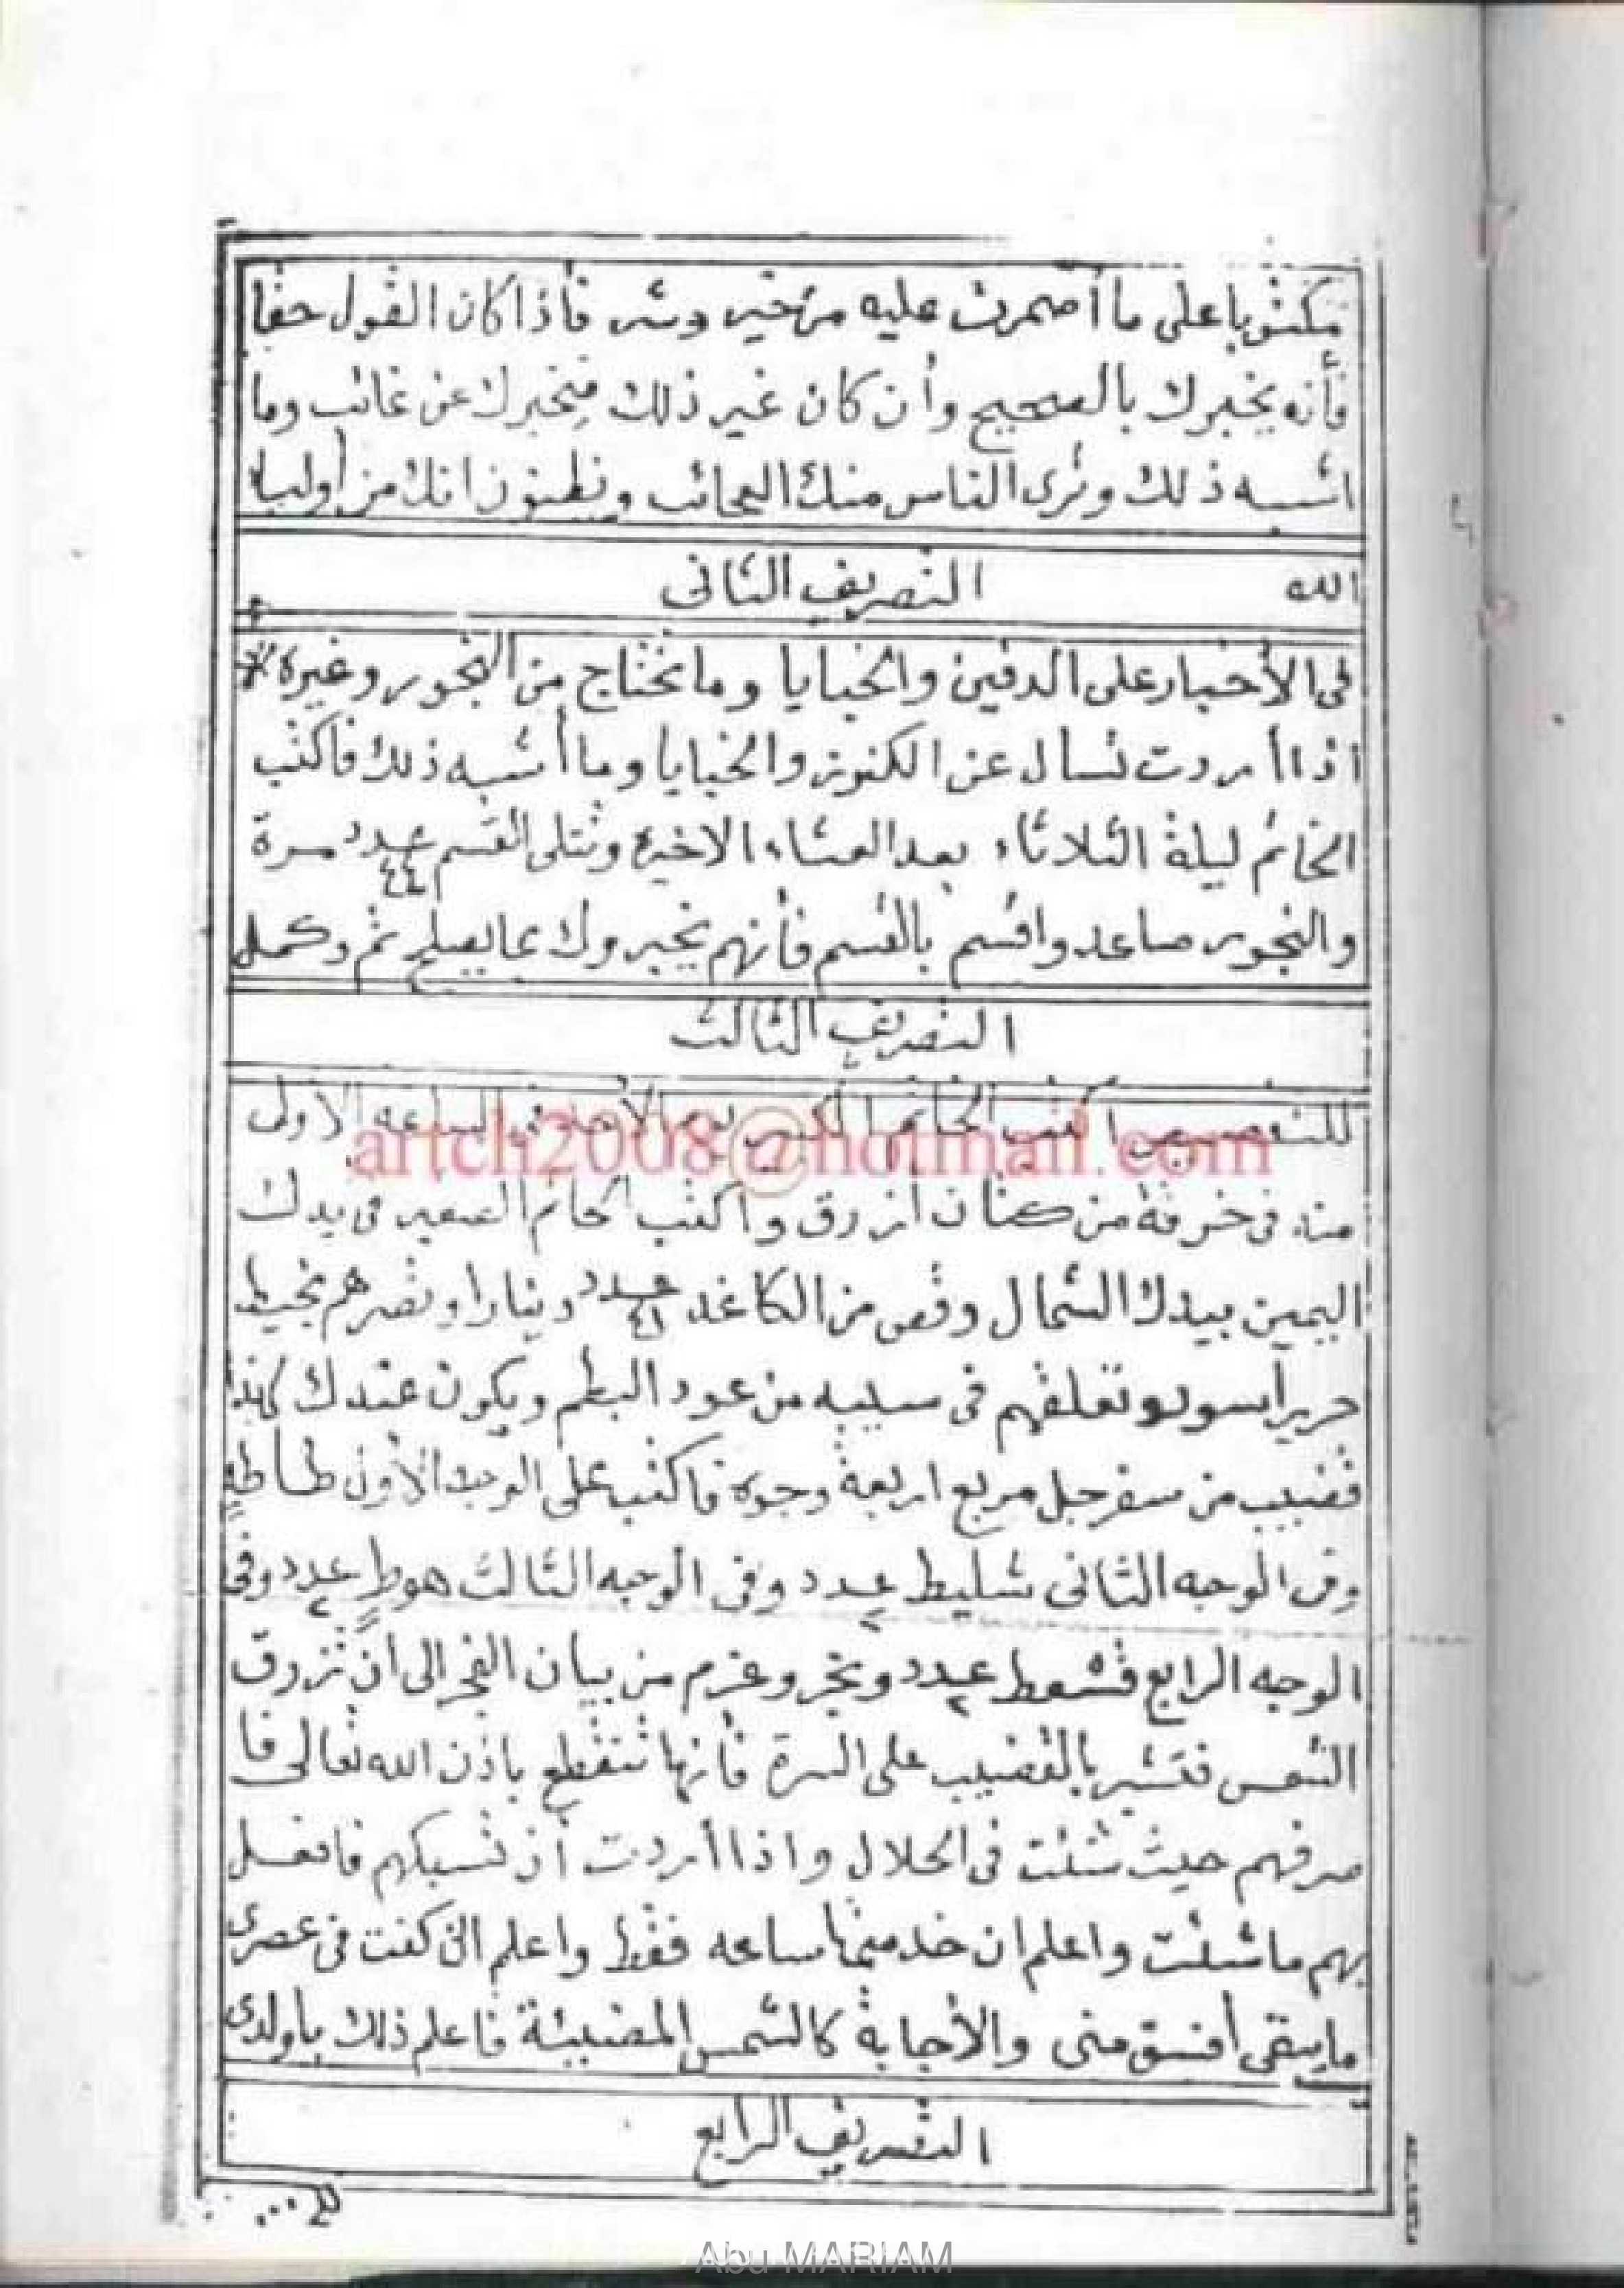 مكتوبا على ما أضمرت عليه من خير وشر فأذا كان القول حقا
فأنه يخبرك بالصحيح وأن كان غير ذلك فيخبرك عن غائب وما
اشبه ذلك وترى الناس منك العجائب ويظنون انك من أولياء
الله التصريف الثانى
فى الأخبار على الدفين والخبايا وما تحتاج من البخور وغيره
اذا أردت تسأل عن الكنوز والخبايا وما أشبه ذلك فاكتب
الخاتم ليلة الثلاثاء بعد العشاء الاخيرة وتتلى القسم عدد ٤٤ مرة
والبخور صاعد واقسم بالقسم فأنهم يخبروك عما يصلح ثم وكمل
التصريف الثالث
اكتب الخاتم الكبير يوم الأحد فى الساعه الاولى
منه فى خرقة من كتان أزرق واكتب الخاتم الصغير فى يدك
اليمين بيدك الشمال وقص من الكاغد عدد ٤١ دينارا وتصرهم بخيط
حرير أسود وتعلقهم فى سيبه من عود البطم ويكون عندك
قضيب من سفرجل مربع اربعة وجوه فاكتب على الوجه الأول
وفى الوجه الثانى شليط عدد ٢ وفى الوجه الثالث هوط عدد ٢ وفى
الوجه الرابع قشعط عدد ٢ وبخر وعزم من بيان الفجر الى ان تزرق
الشمس فتشير بالقضيب على الصرة فأنها تنقطع باذن الله تعالى فا
صرفهم حيث شئت فى الحلال واذا أردت أن تسبكهم فافعل
بهم ما شئت واعلم ان خدمتها ساعه فقط واعلم انى كنت فى عصرى
ما يبقى أفسق منى والأجابة كالشمس المضيئة فاعلم ذلك ياولدى
التصريف الرابع
artch2008@hotmail.com
Abu MARIAM